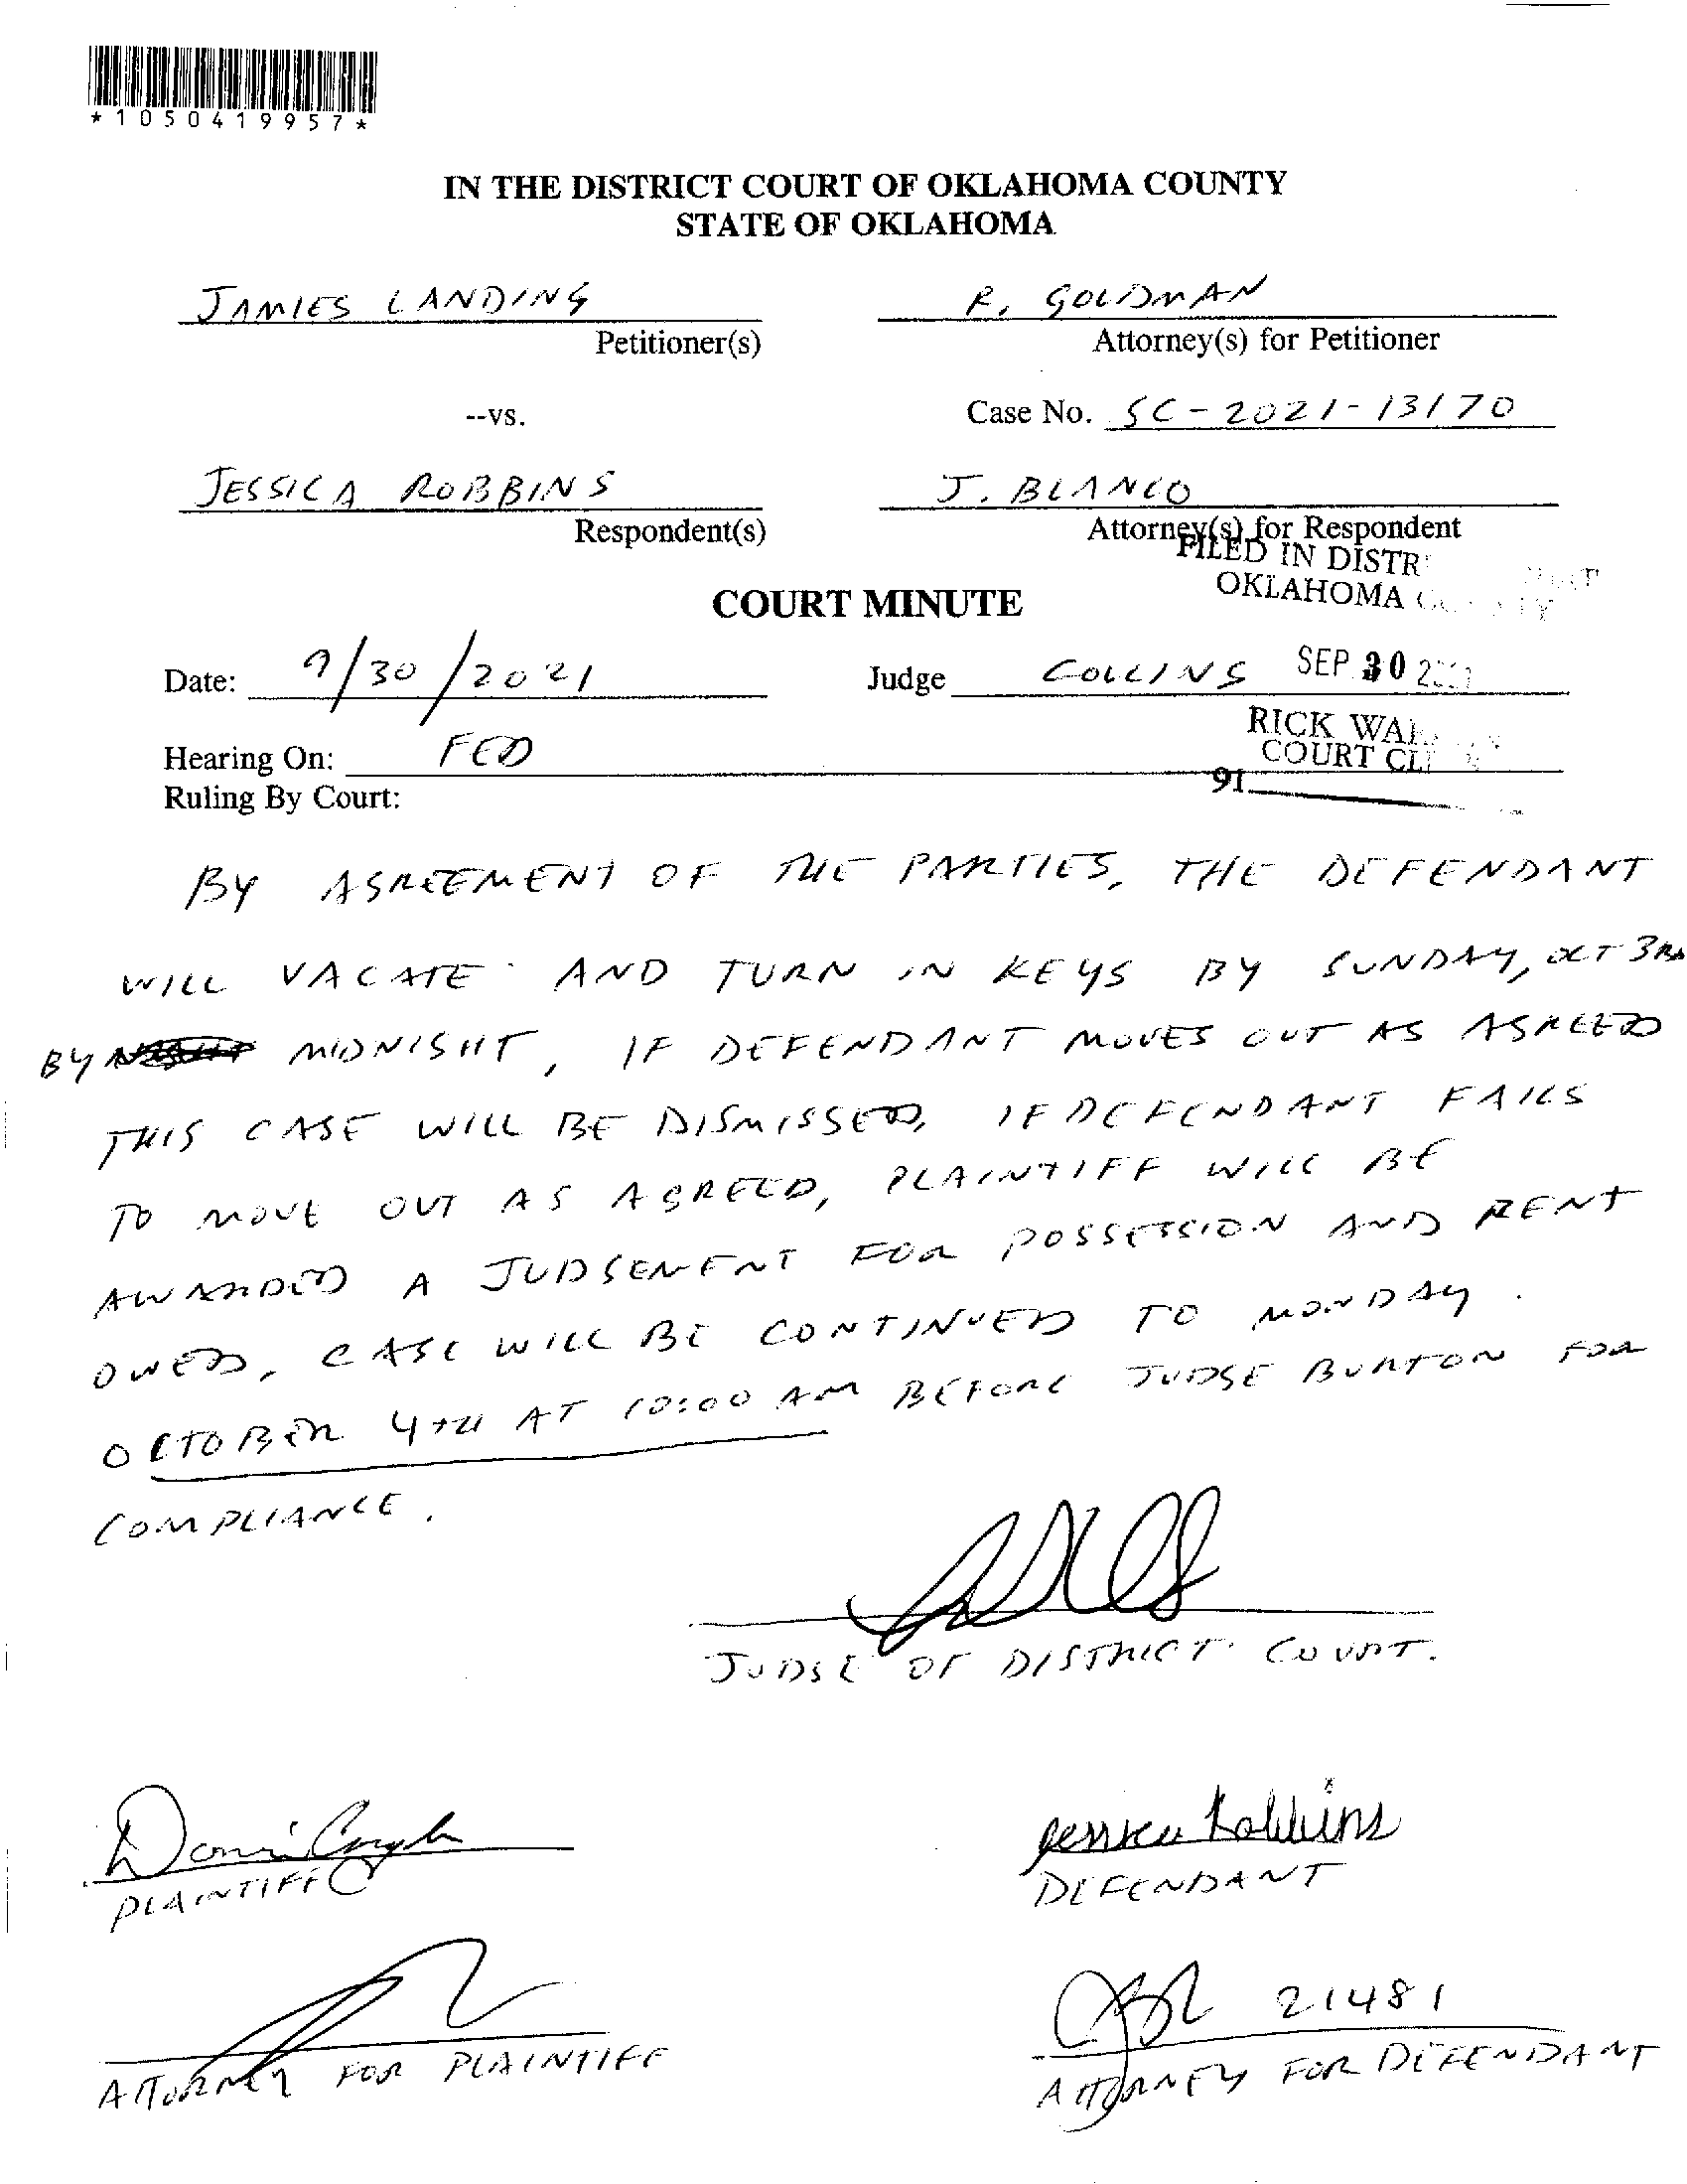 *1050419957*
IN THE DISTRICT COURT OF OKLAHOMA COUNTY
STATE OF OKLAHOMA
JAMIES LANDING
R. GOLDMAN
Petitioner(s)
Attorney(s) for Petitioner
--vs.
Case No. SC-2021-13170
JESSICA ROBBINS
J. BLANCO
Respondent(s)
Attorney(s) for Respondent
FILED IN DISTR
OKLAHOMA
COURT MINUTE
Date: 9/30/2021
Judge COLLINS
SEP 30
RICK
COURT
Hearing On: FED
91
Ruling By Court:
BY AGREEMENT OF THE PARTIES, THE DEFENDANT
WILL VACATE AND TURN IN KEYS BY SUNDAY, OCT 3RD
BY MIDNIGHT, IF DEFENDANT MOVES OUT AS AGREED
THIS CASE WILL BE DISMISSED, IF DEFENDANT FAILS
TO MOVE OUT AS AGREED, PLAINTIFF WILL BE
AWARDED A JUDGEMENT FOR POSSESSION AND RENT
OWED, CASE WILL BE CONTINUED TO MONDAY
OCTOBER 4TH AT 10:00 AM BEFORE JUDGE BURTON FOR
COMPLIANCE.
JUDGE OF DISTRICT COURT.
Jessica Robbins
PLAINTIFF
DEFENDANT
21481
ATTORNEY FOR PLAINTIFF
ATTORNEY FOR DEFENDANT